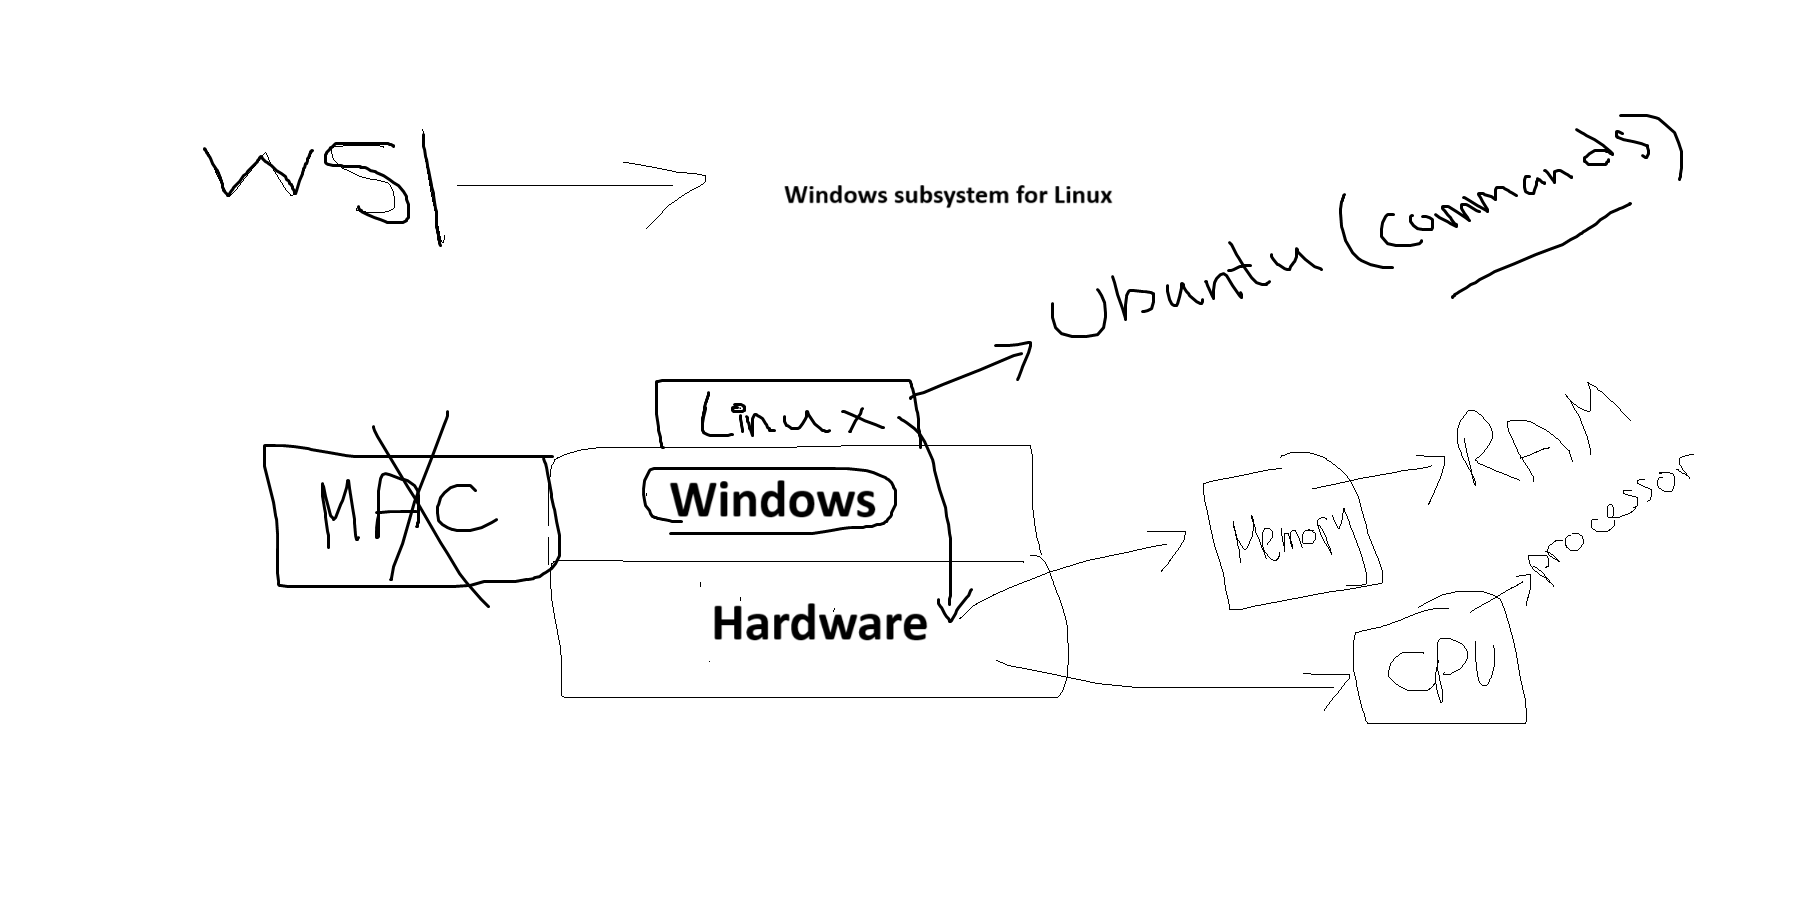 wsl
Windows subsystem for Linux
Ubuntu (commands)
Linux
MAC
Windows
Hardware
Memory
RAM
CPU
processor